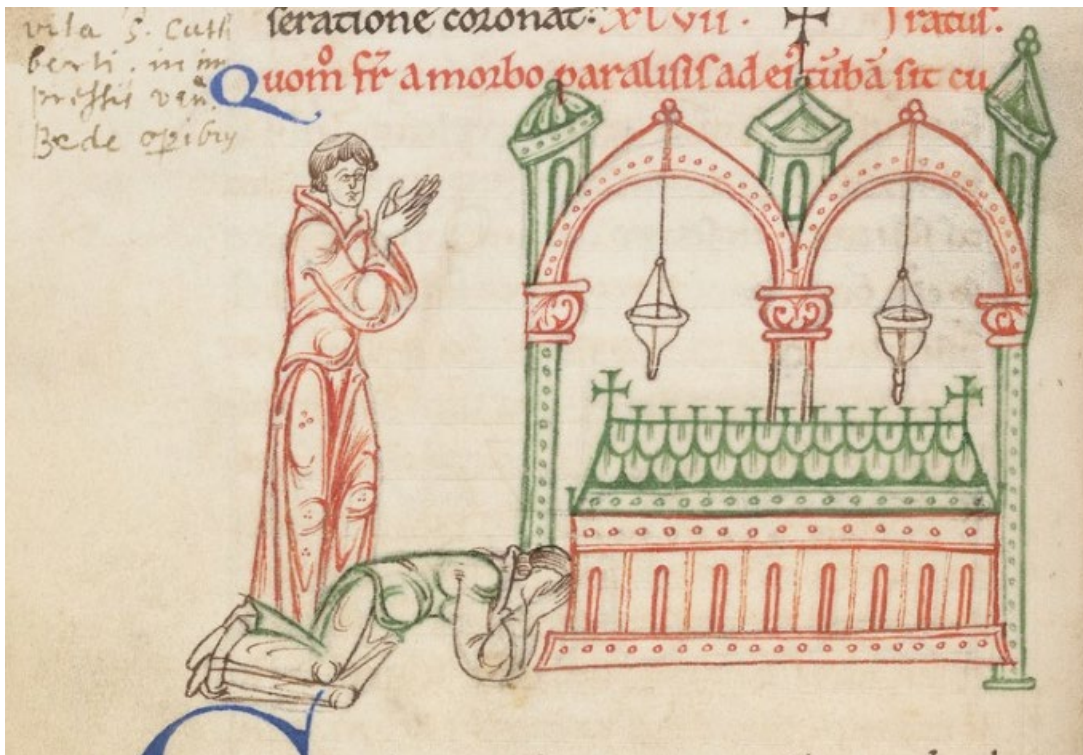 vita S. Cuth
berti. in im
pressis ven.
Bede operibus
seratione coronat: XLVII. Iratus.
Quom̄ fr̄ a morbo paralisis ad ei᷒ tūbā sit cu